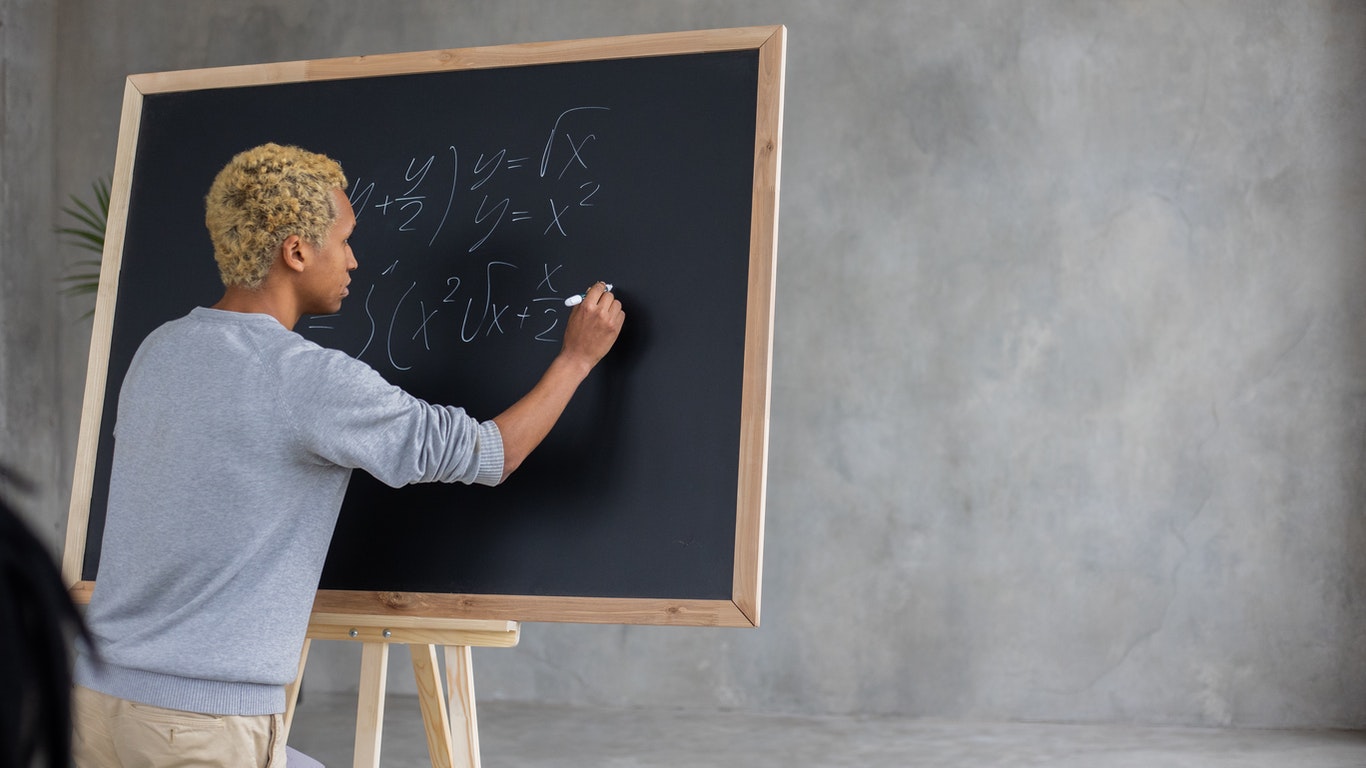 y + y/2 ) y = √x
y = x²
= ∫ ( x² √x + x/2